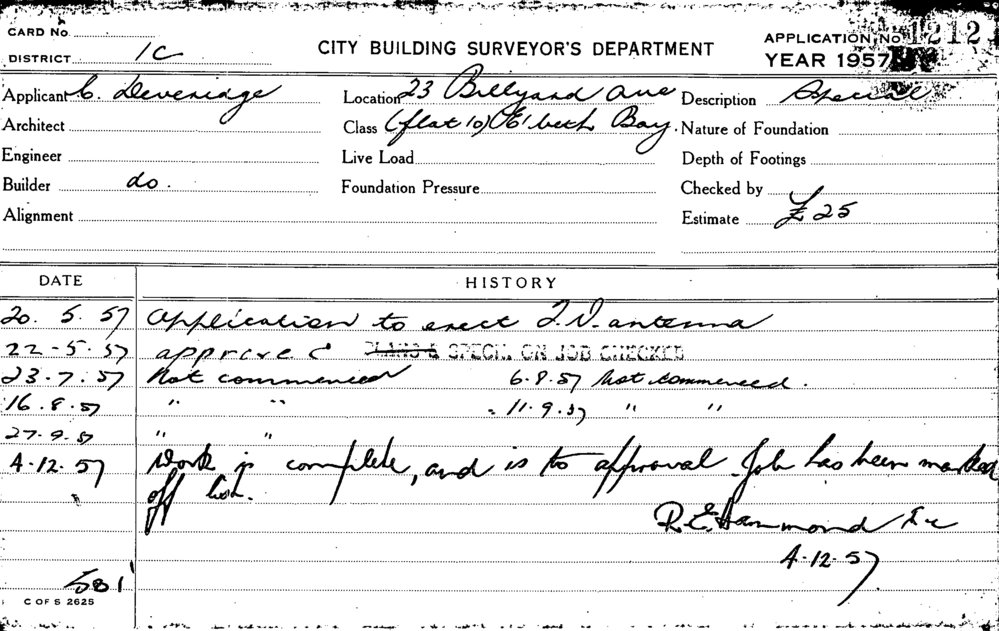 CARD No.
DISTRICT 1C
CITY BUILDING SURVEYOR'S DEPARTMENT
APPLICATION No. 1212
YEAR 1957
Applicant C. Deveridge
Location 23 Billyard Ave
Description Special
Architect
Class (flat 10) E'beth Bay.
Nature of Foundation
Engineer
Live Load
Depth of Footings
Builder do.
Foundation Pressure
Checked by
Alignment
Estimate £25
DATE HISTORY
20. 5. 57 Application to erect T.V. antenna
22-5-57 approved PLANS & SPECN. ON JOB CHECKED
23-7-57 Not commenced 6.8.57 Not commenced.
16.8.57 " " 11.9.57 " "
27.9.57 " "
4-12-57 Work is complete, and is to approval. Job has been marked
off list.
R.E. Hammond
4-12-57
C OF S 2625